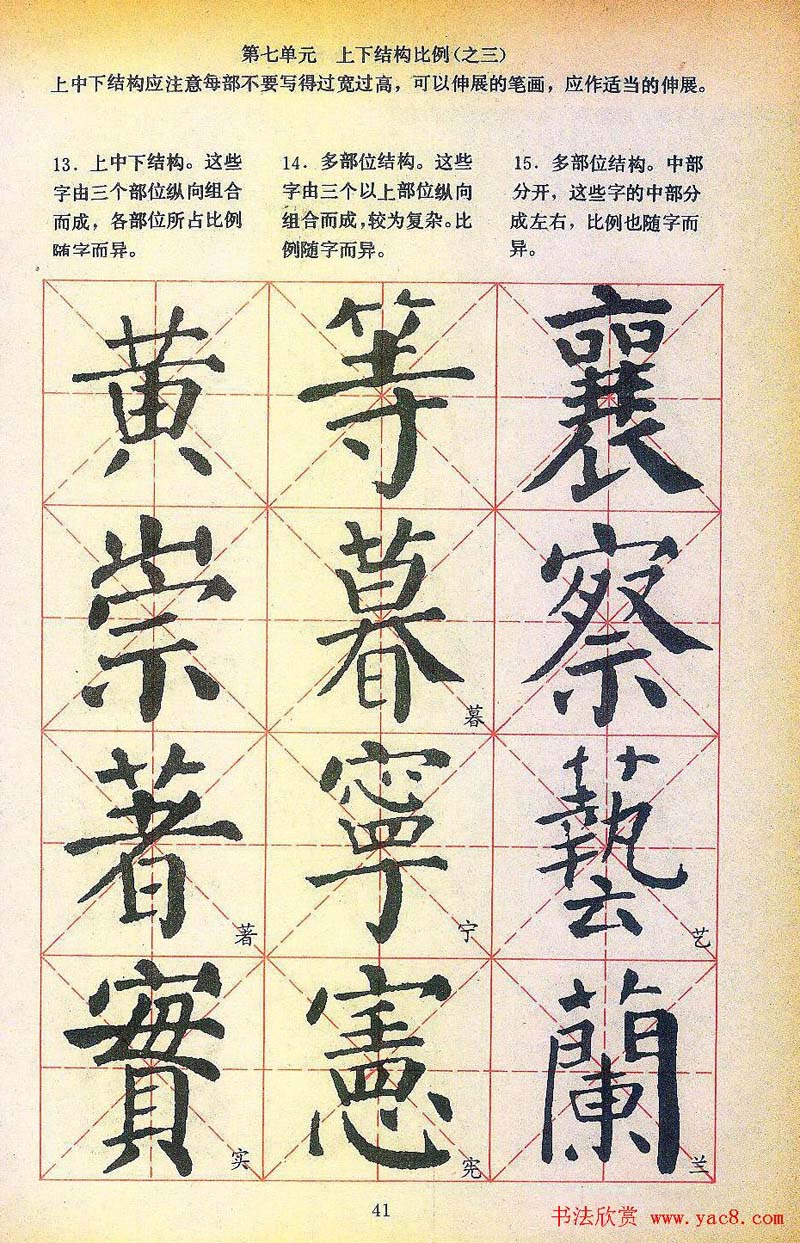 第七单元　上下结构比例(之三)
上中下结构应注意每部不要写得过宽过高，可以伸展的笔画，应作适当的伸展。
13．上中下结构。这些
字由三个部位纵向组合
而成，各部位所占比例
随字而异。
14．多部位结构。这些
字由三个以上部位纵向
组合而成，较为复杂。比
例随字而异。
15．多部位结构。中部
分开，这些字的中部分
成左右，比例也随字而
异。
黄 等 襄
崇 暮 察
暮
著 寧 藝
著 宁 艺
實 憲 蘭
实 宪 兰
41
书法欣赏 www.yac8.com